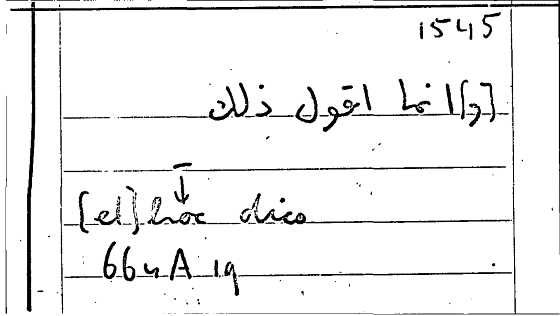 1545
[و]انما اقول ذلك
[et] hoc dico
664A 19